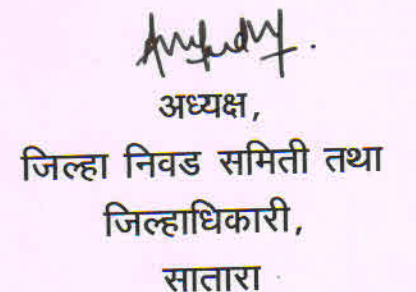 अध्यक्ष,
जिल्हा निवड समिती तथा
जिल्हाधिकारी,
सातारा